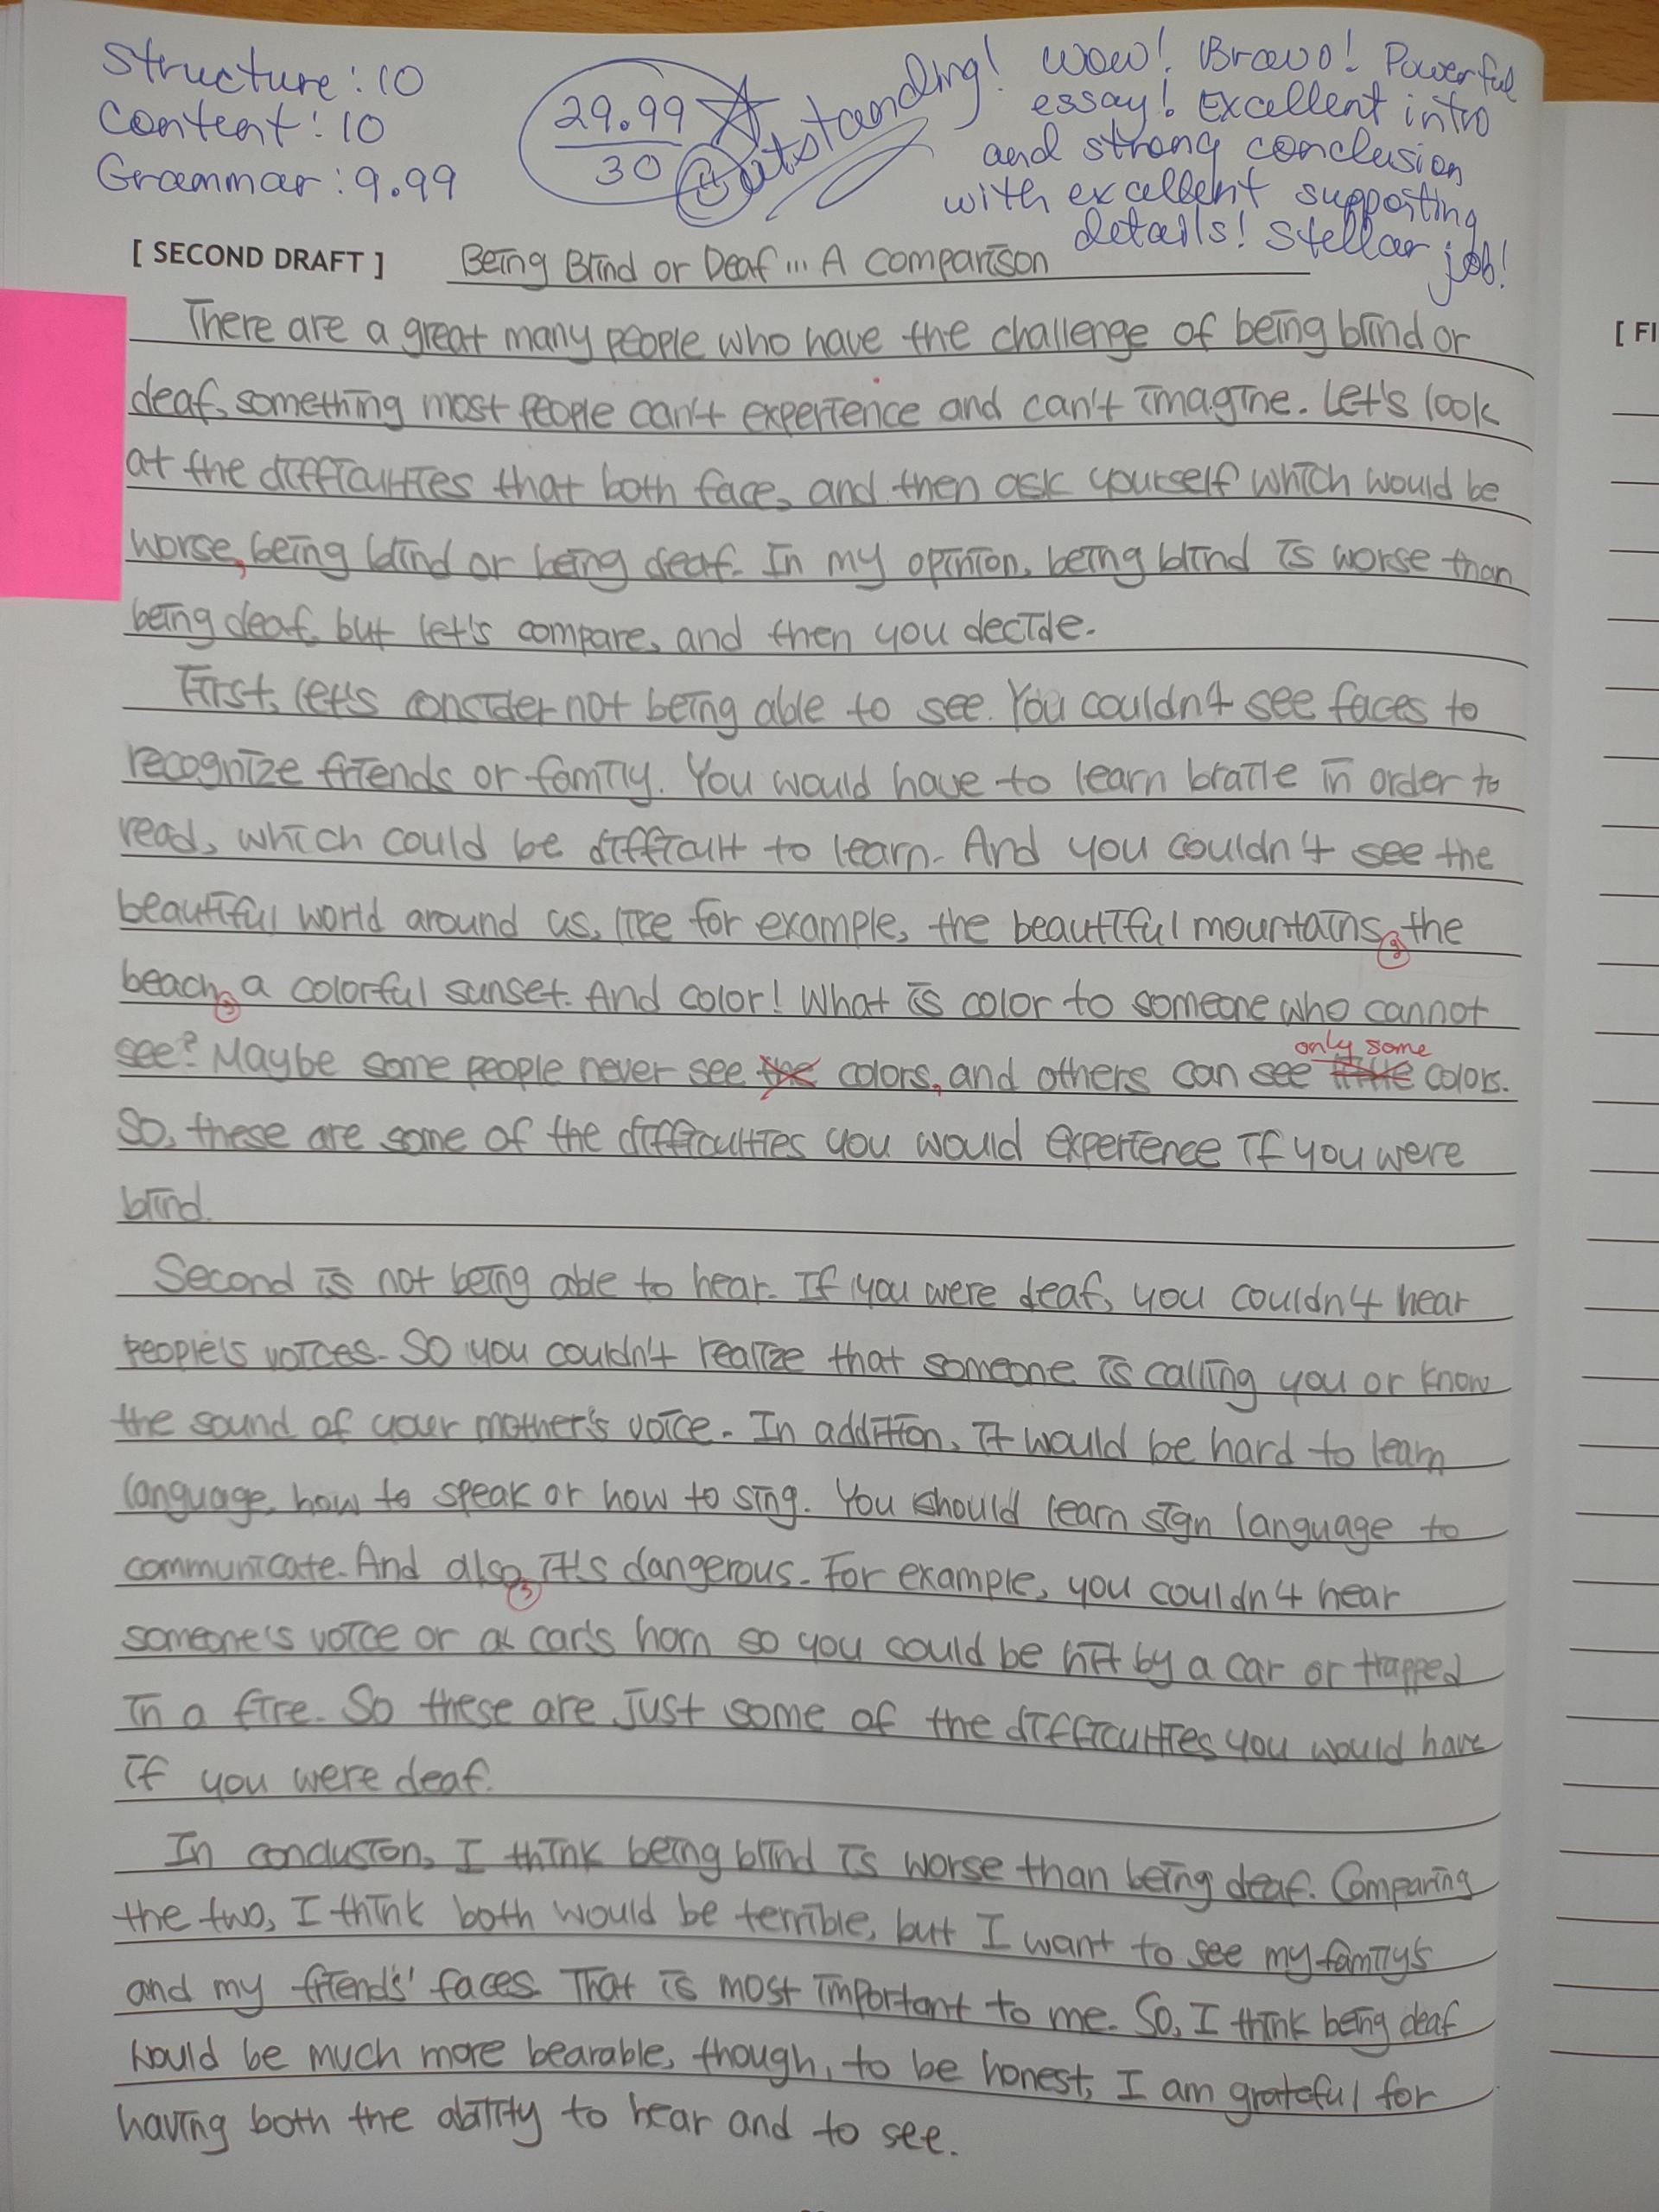 Structure: 10
Content: 10
Grammar: 9.99
29.99
30
Outstanding!
Wow! Bravo! Powerful
essay! Excellent intro
and strong conclusion
with excellent supporting
details! Stellar job!
[ SECOND DRAFT ] Being Blind or Deaf... A Comparison
There are a great many people who have the challenge of being blind or
deaf, something most people can't experience and can't imagine. Let's look
at the difficulties that both face, and then ask yourself which would be
worse, being blind or being deaf. In my opinion, being blind is worse than
being deaf, but let's compare, and then you decide.
First, let's consider not being able to see. You couldn't see faces to
recognize friends or family. You would have to learn braile in order to
read, which could be difficult to learn. And you couldn't see the
beautiful world around us, like for example, the beautiful mountains, the
beach, a colorful sunset. And color! What is color to someone who cannot
only some
see? Maybe some people never see the colors, and others can see little colors.
So, these are some of the difficulties you would experience if you were
blind.
Second is not being able to hear. If you were deaf, you couldn't hear
people's voices. So you couldn't realize that someone is calling you or know
the sound of your mother's voice. In addition, it would be hard to learn
language, how to speak or how to sing. You should learn sign language to
communicate. And also, it's dangerous. For example, you couldn't hear
someone's voice or a car's horn so you could be hit by a car or trapped
in a fire. So these are just some of the difficulties you would have
if you were deaf.
In conclusion, I think being blind is worse than being deaf. Comparing
the two, I think both would be terrible, but I want to see my family's
and my friends' faces. That is most important to me. So, I think being deaf
would be much more bearable, though, to be honest, I am grateful for
having both the ability to hear and to see.
[ FI